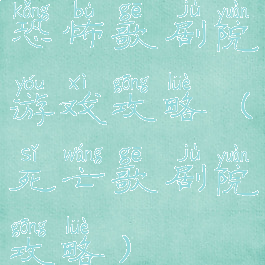 kǒng bù gē jù yuàn
恐怖歌剧院
yóu xì gōng lüè
游戏攻略（
sǐ wáng gē jù yuàn
死亡歌剧院
gōng lüè
攻略）